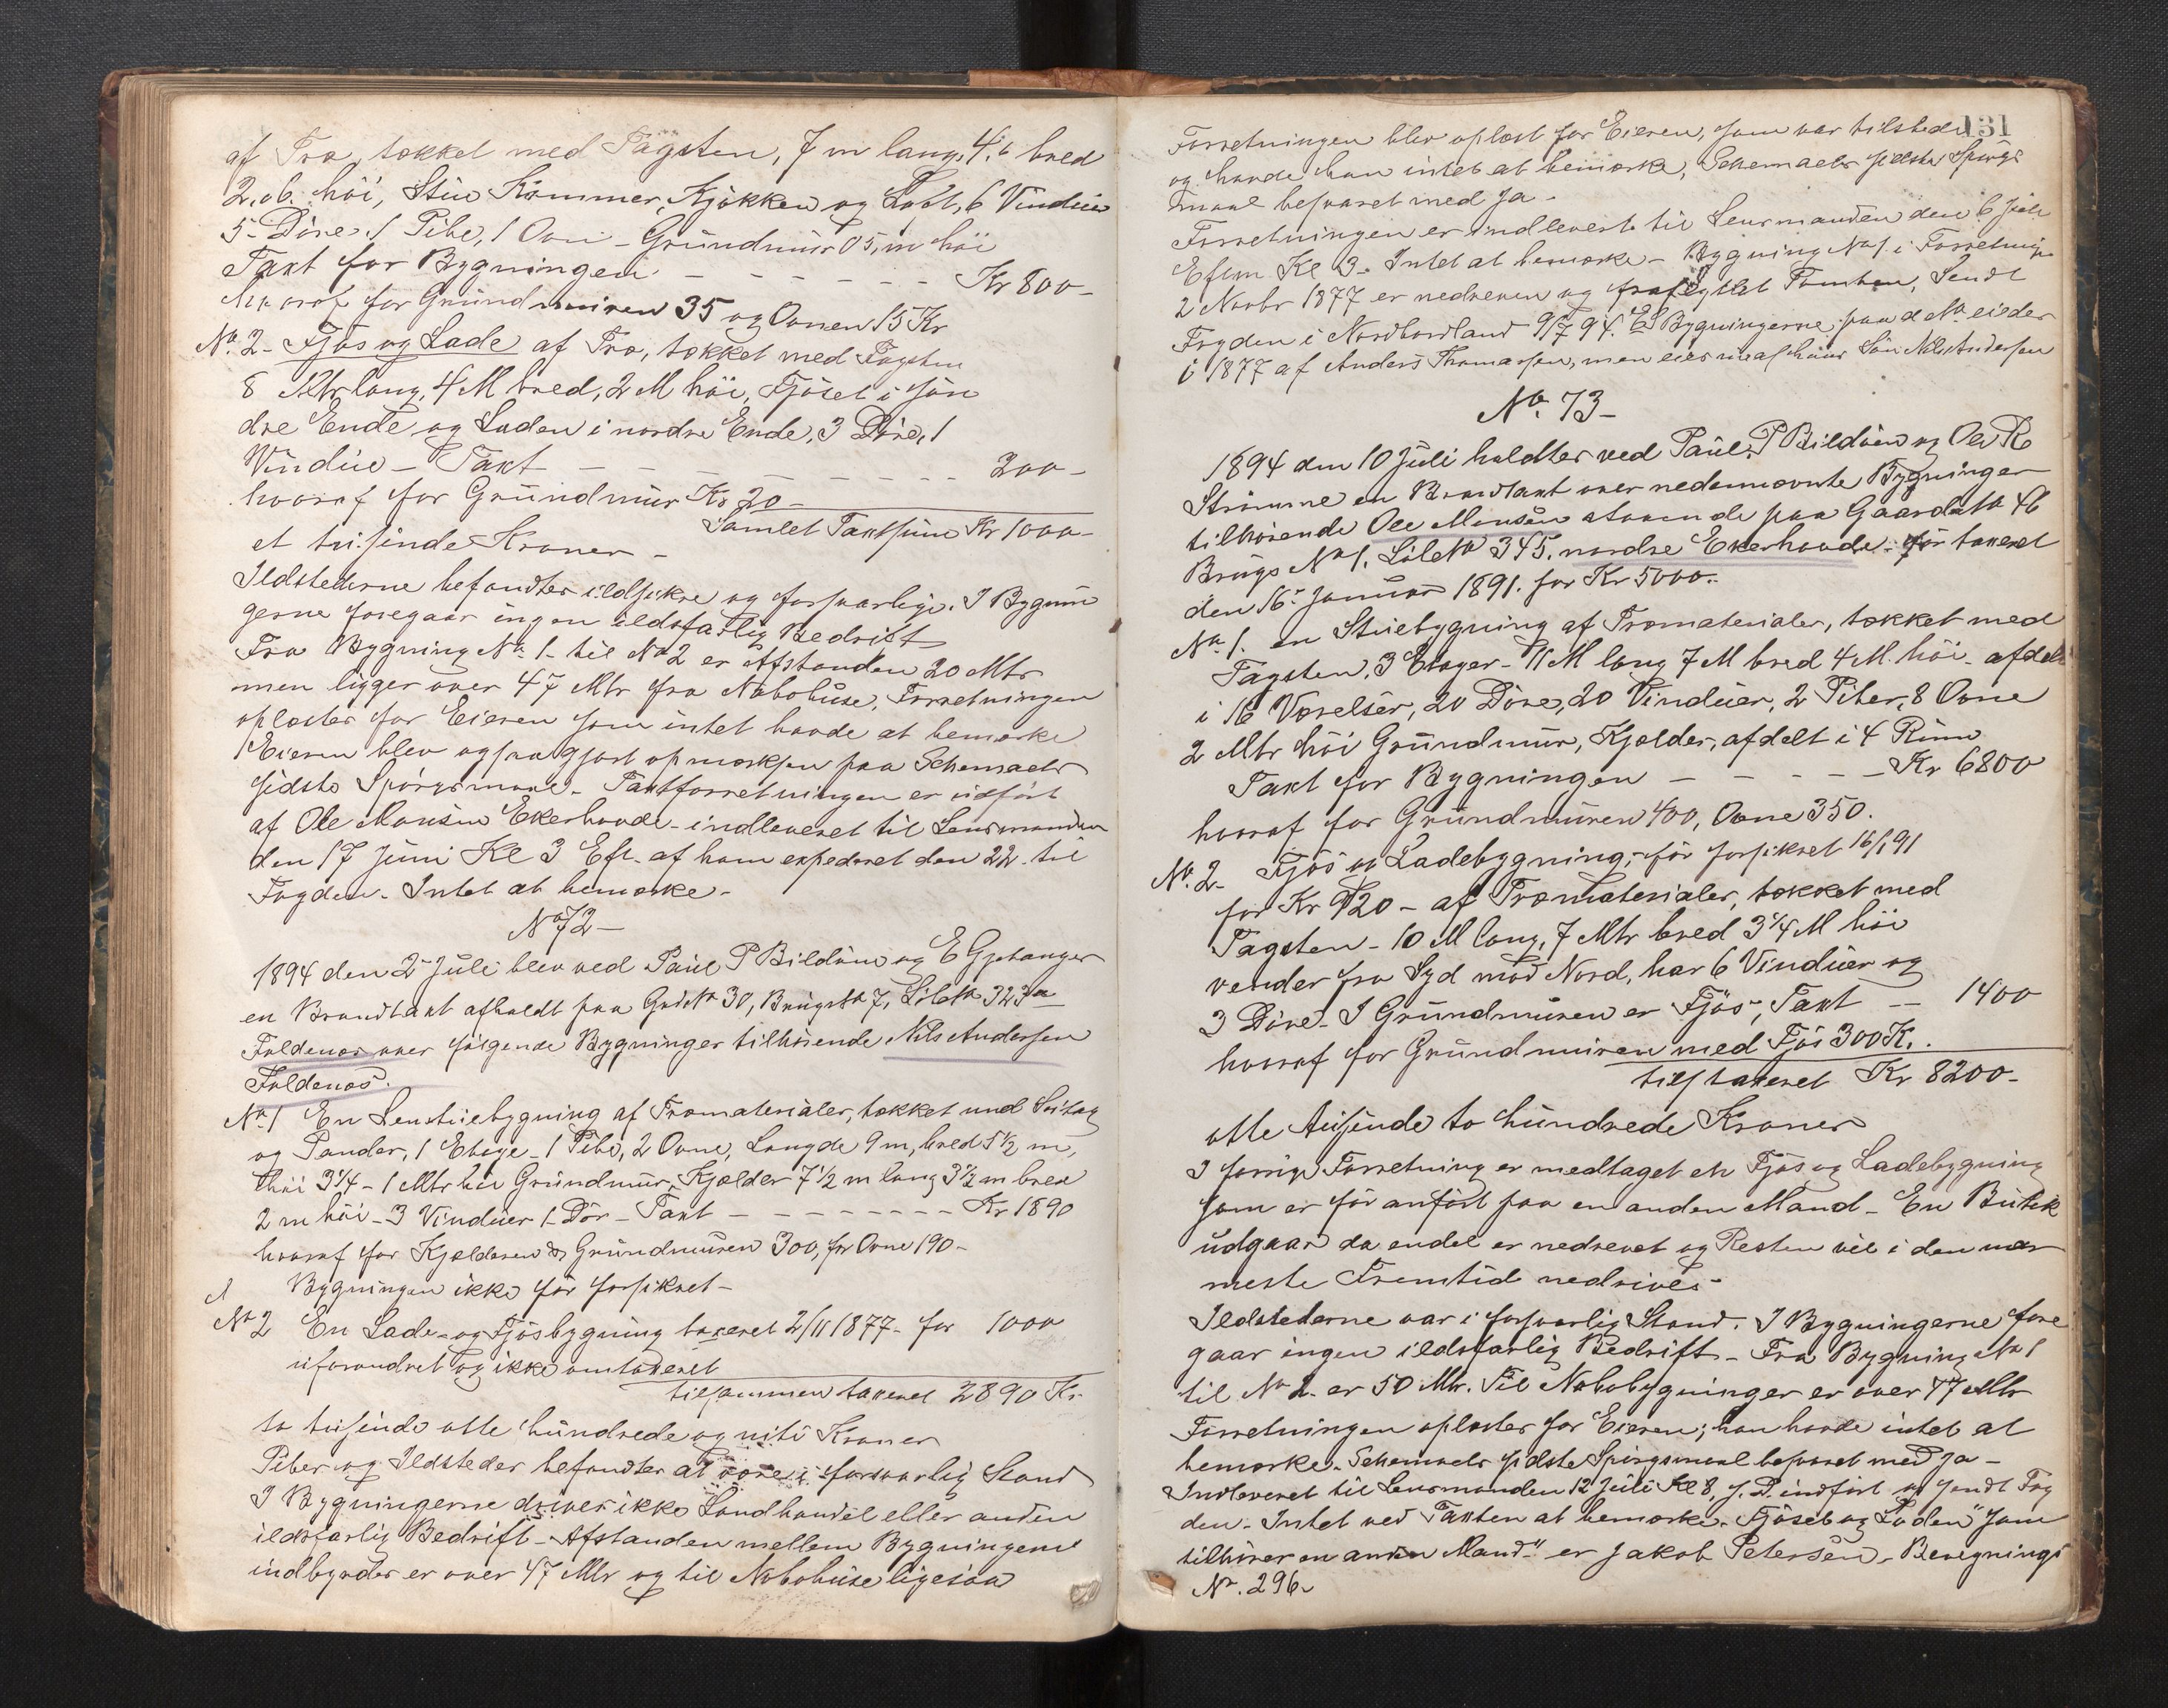 af Træ, tækket med Tagsten, 7 m lang, 4,6 bred
2,06 höi, Stue Kammer, Kjökken og Loft, 6 Vinduer
5 Döre, 1 Pibe, 1 Ovn - Grundmur 05, m höi
Taxt for Bygningen - - - - - - Kr 800 -
hvoraf for Grundmuren 35 og Ovnen 15 Kr
No. 2 - Fjös og Lade af Træ, tækket med Tagsten
8 Mtr lang, 4 M bred, 2 M höi, Fjöset i søn
dre Ende og Laden i nordre Ende, 3 Döre, 1
Vindue - Taxt - - - - - - - 200 -
hvoraf for Grundmur Kr 20 -
Samlet Taxtsum Kr 1000 -
et tusinde Kroner -
Ildstederne befandtes ildsikre og forsvarlige. I Bygnin
gerne foregaar ingen ildsfarlig Bedrift
Fra Bygning No. 1 - til No 2 er Afstanden 20 Mtr
men ligger over 47 Mtr fra Nabohuse. Forretningen
oplæstes for Eieren som intet havde at bemærke
Eieren blev ogsaa gjort opmærksom paa Schemaets
sidste Spörgsmaal - Taxtforretningen er udført
af Ole Monsen Ekerhovde - indleveret til Lensmanden
den 17 Juni Kl 3 Eft. af ham expederet den 22 - til
Fogden. Intet at bemærke -
No 72 -
1894 den 2 Juli blev ved Paul P Bildöen og E Gjetanger
en Brandtaxt afholdt paa Gards No 30, Brugs No 7, Löbe No 323 a
Foldenæs over fölgende Bygninger tilhörende Nils Andersen
Foldenæs.
No 1 En Lenstuebygning af Træmaterialer, tækket med
og Pander, 1 Etage - 1 Pibe, 2 Ovne, Længde 9 m, bred 5 1/2 m,
höi 3 1/4 - 1 Mtr höi Grundmur, Kjælder 7 1/2 m lang 3 1/2 m bred
2 m höi - 3 Vinduer 1 - Dör - Taxt - - - - - - - - Kr 1890
hvoraf for Kjælderen & Grundmuren 300, for Ovne 190 -
Bygningen ikke för forsikret -
No 2 En Lade- og Fjösbygning taxeret 2/11 1877 - for 1000
uforandret og ikke omtaxeret
tilsammen taxeret 2890 Kr.
to tusinde otte hundrede og niti Kroner
Piber og Ildsteder befandtes at være i forsvarlig Stand
I Bygningerne drives ikke Landhandel eller anden
ildsfarlig Bedrift - Afstanden mellem Bygningerne
indbyrdes er over 47 Mtr og til Nabohuse ligesaa
131
Forretningen blev oplæst for Eieren, som var tilstede
og havde han intet at bemærke, Schemaets sidste Spörgs
maal besvaret med Ja -
Forretningen er indleveret til Lensmanden den 6 Juli
Eftm Kl 3. Intet at bemærke - Bygning No 1 i Forretning
2 Novbr 1877 er nedreven og fraflyttet Tomten, Sendt
Fogden i Nordhordland 9/7 94. Bygningerne paa d No eiedes
i 1877 af Anders Thomassen, men eies nu af hans Sön Nils Andersen
No. 73 -
1894 den 10 Juli holdtes ved Paul P Bildöen og Ole R
Strömme en Brandtaxt over nedennævnte Bygninger
tilhörende Ole Monsen staaende paa Gaards No 46
Brugs No 1. Löbe No 345. nordre Ekerhovde - för taxeret
den 16 Januar 1891. for Kr 5000.
No 1. en Stuebygning af Træmaterialer, tækket med
Tagsten, 3 Etager - 11 M lang 7 M bred 4 M. höi - afdelt
i 16 Værelser, 20 Döre, 20 Vinduer, 2 Piber, 8 Ovne
2 Mtr höi Grundmur, Kjælder, afdelt i 4 Rum
Taxt for Bygningen - - - - - Kr 6800
hvoraf for Grundmuren 400, Ovne 350.
No. 2 - Fjös og Ladebygning, för forsikret 16/1 91
for Kr 920 - af Træmaterialer, tækket med
Tagsten - 10 M lang, 7 Mtr bred 3 1/4 M höi
vender fra Syd mod Nord, har 6 Vinduer og
3 Döre - I Grundmuren er Fjös, Taxt - 1400
hvoraf for Grundmuren med Fjös 300 Kr.
tils taxeret Kr 8200 -
otte tusinde to hundrede Kroner
I forrige Forretning er medtaget en Fjös og Ladebygning
som er för anfört paa en anden Mand - En Butik
udgaar da endel er nedrevet og Resten vil i den nær
meste Fremtid nedrives -
Ildstederne var i forsvarlig Stand. I Bygningerne fore
gaar ingen ildsfarlig Bedrift - Fra Bygning No 1
til No 2 - er 50 Mtr. Til Nabobygninger er over 47 Mtr
Forretningen oplæstes for Eieren; han havde intet at
bemærke. Schemaets sidste Spörgsmaal besvaret med Ja -
Indleveret til Lensmanden 12 Juli Kl 8, s. D. indfört og sendt Fog
den - Intet ved Taxten at bemærke. Fjöset og Laden "som
tilhörer en anden Mand" er Jakob Petersen - Beregnings
No. 296 -